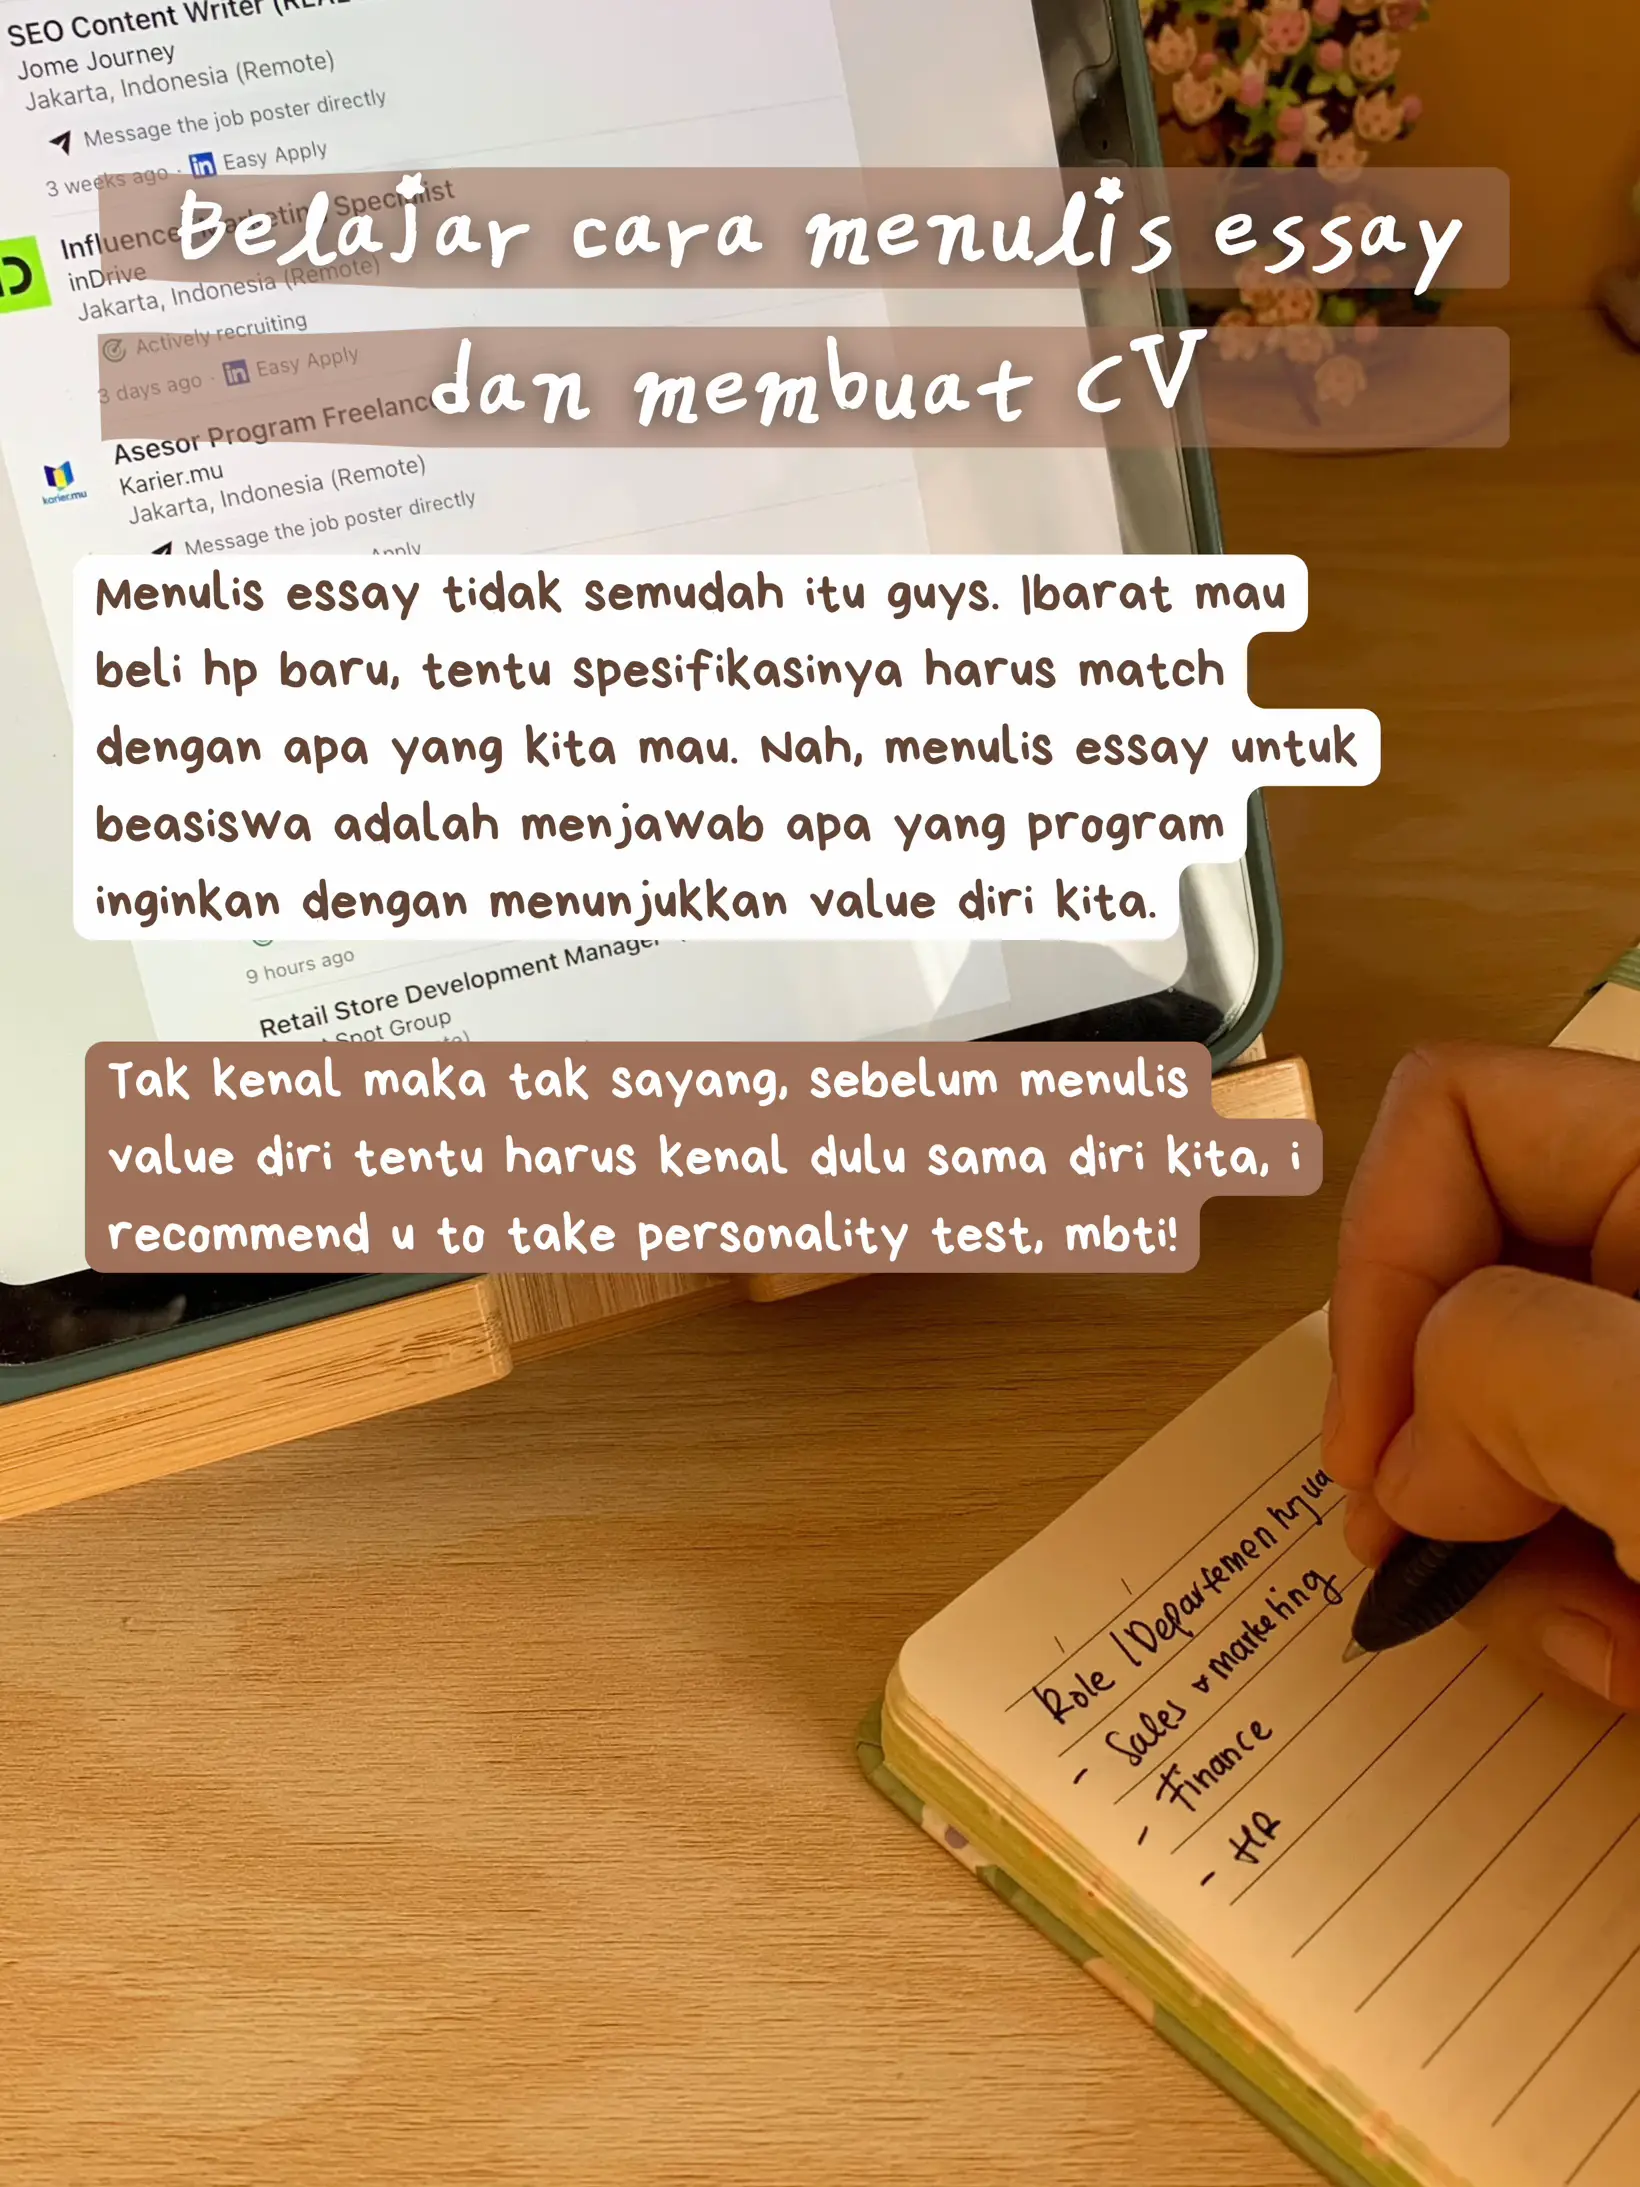 SEO Content Writer
Jome Journey
Jakarta, Indonesia (Remote)
Message the job poster directly
3 weeks ago · in Easy Apply
Belajar cara menulis essay
Influencer Marketing Specialist
inDrive
Jakarta, Indonesia (Remote)
Actively recruiting
3 days ago · in Easy Apply
dan membuat CV
Asesor Program Freelance
karier.mu
Karier.mu
Jakarta, Indonesia (Remote)
Message the job poster directly
Apply
Menulis essay tidak semudah itu guys. Ibarat mau
beli hp baru, tentu spesifikasinya harus match
dengan apa yang kita mau. Nah, menulis essay untuk
beasiswa adalah menjawab apa yang program
inginkan dengan menunjukkan value diri kita.
9 hours ago
Retail Store Development Manager
Spot Group
Tak kenal maka tak sayang, sebelum menulis
value diri tentu harus kenal dulu sama diri kita, i
recommend u to take personality test, mbti!
Role / Departemen
- Sales & marketing
- Finance
- HR